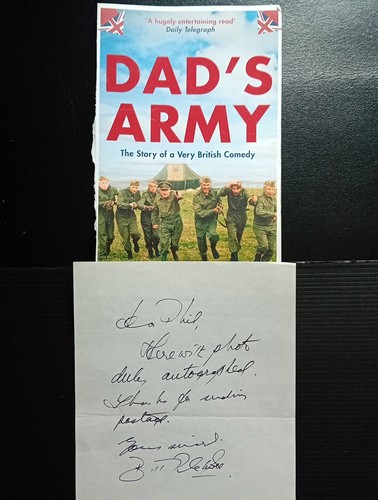 'A hugely entertaining read'
Daily Telegraph
DAD'S
ARMY
The Story of a Very British Comedy
Dear Phil,
Herewith photo
duly autographed.
Thanks for sending
postage.
Yours sincerely.
Bill